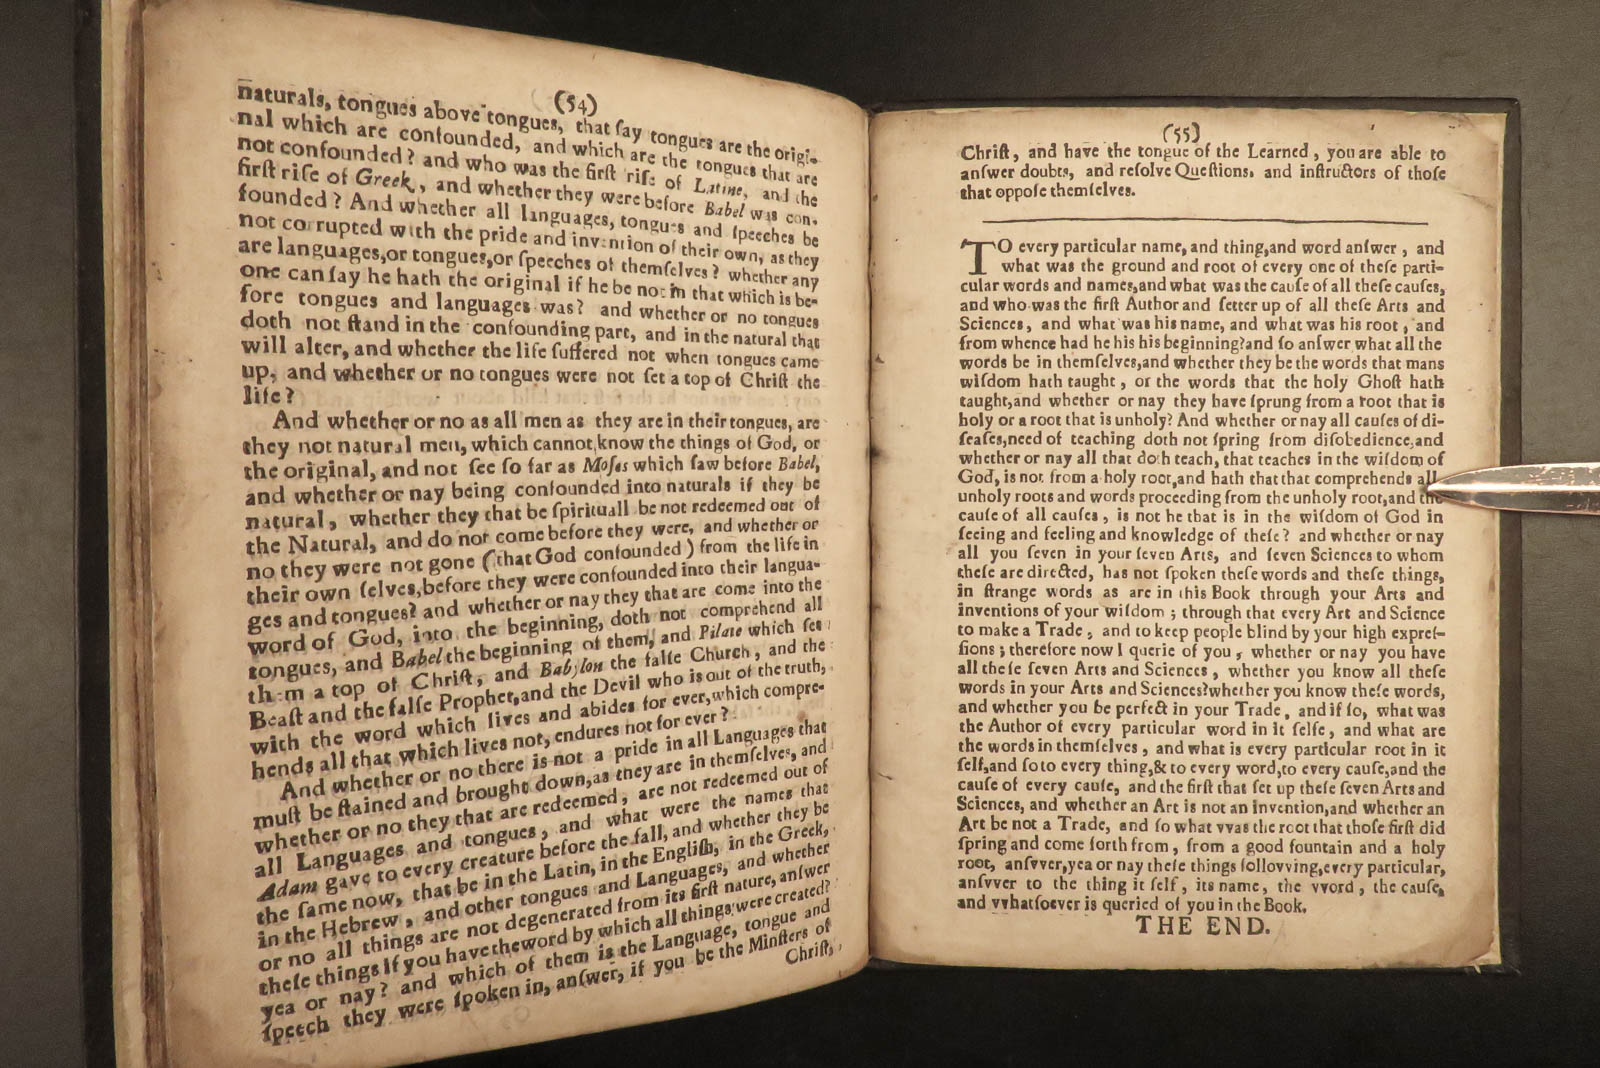 (54)
naturals, tongues above tongues, that ſay tongues are the origi-
nal which are confounded, and which are the tongues that are
not confounded? and who was the firſt riſe of Latine, and the
firſt riſe of Greek, and whether they were before Babel was con-
founded? And whether all languages, tongues and ſpeeches be
not corrupted with the pride and invention of their own, as they
are languages,or tongues,or ſpeeches of themſelves? whether any
one can ſay he hath the original if he be not in that which is be-
fore tongues and languages was? and whether or no tongues
doth not ſtand in the confounding part, and in the natural that
will alter, and whether the life ſuffered not when tongues came
up, and whether or no tongues were not ſet a top of Chriſt the
life?
And whether or no as all men as they are in their tongues, are
they not natural men, which cannot know the things of God, or
the original, and not ſee ſo far as Moſes which ſaw before Babel,
and whether or nay being confounded into naturals if they be
natural, whether they that be ſpirituall be not redeemed out of
the Natural, and do not come before they were, and whether or
no they were not gone (that God confounded) from the life in
their own ſelves,before they were confounded into their langua-
ges and tongues? and whether or nay they that are come into the
word of God, into the beginning, doth not comprehend all
tongues, and Babel the beginning of them, and Pilate which ſet
them a top of Chriſt, and Babylon the falſe Church, and the
Beaſt and the falſe Prophet,and the Devil who is out of the truth,
with the word which lives and abides for ever,which compre-
hends all that which lives not, endures not for ever?
And whether or no there is not a pride in all Languages that
muſt be ſtained and brought down,as they are in themſelves, and
whether or no they that are redeemed, are not redeemed out of
all Languages and tongues, and what were the names that
Adam gave to every creature before the fall, and whether they be
the ſame now, that be in the Latin, in the Engliſh, in the Greek,
in the Hebrew, and other tongues and Languages, and whether
or no all things are not degenerated from its firſt nature, anſwer
theſe things if you have the word by which all things were created?
yea or nay? and which of them is the Language, tongue and
ſpeech they were ſpoken in, anſwer, if you be the Miniſters of
Chriſt,
(55)
Chriſt, and have the tongue of the Learned, you are able to
anſwer doubts, and reſolve Queſtions, and inſtructors of thoſe
that oppoſe themſelves.
TO every particular name, and thing,and word anſwer, and
what was the ground and root of every one of theſe parti-
cular words and names,and what was the cauſe of all theſe cauſes,
and who was the firſt Author and ſetter up of all theſe Arts and
Sciences, and what was his name, and what was his root, and
from whence had he his his beginning?and ſo anſwer what all the
words be in themſelves,and whether they be the words that mans
wiſdom hath taught, or the words that the holy Ghoſt hath
taught,and whether or nay they have ſprung from a root that is
holy or a root that is unholy? And whether or nay all cauſes of di-
ſeaſes,need of teaching doth not ſpring from diſobedience,and
whether or nay all that doth teach, that teaches in the wiſdom of
God, is not from a holy root,and hath that that comprehends all
unholy roots and words proceeding from the unholy root,and the
cauſe of all cauſes, is not he that is in the wiſdom of God in
ſeeing and feeling and knowledge of theſe? and whether or nay
all you ſeven in your ſeven Arts, and ſeven Sciences to whom
theſe are directed, has not ſpoken theſe words and theſe things,
in ſtrange words as are in this Book through your Arts and
inventions of your wiſdom; through that every Art and Science
to make a Trade, and to keep people blind by your high expreſ-
ſions; therefore now I querie of you, whether or nay you have
all theſe ſeven Arts and Sciences, whether you know all theſe
words in your Arts and Sciences?whether you know theſe words,
and whether you be perfect in your Trade, and if ſo, what was
the Author of every particular word in it ſelfe, and what are
the words in themſelves, and what is every particular root in it
ſelf,and ſo to every thing,& to every word,to every cauſe,and the
cauſe of every cauſe, and the firſt that ſet up theſe ſeven Arts and
Sciences, and whether an Art is not an invention,and whether an
Art be not a Trade, and ſo what vvas the root that thoſe firſt did
ſpring and come forth from, from a good fountain and a holy
root, anſvver,yea or nay theſe things follovving,every particular,
anſvver to the thing it ſelf, its name, the vvord, the cauſe,
and vvhatſoever is queried of you in the Book.
THE END.